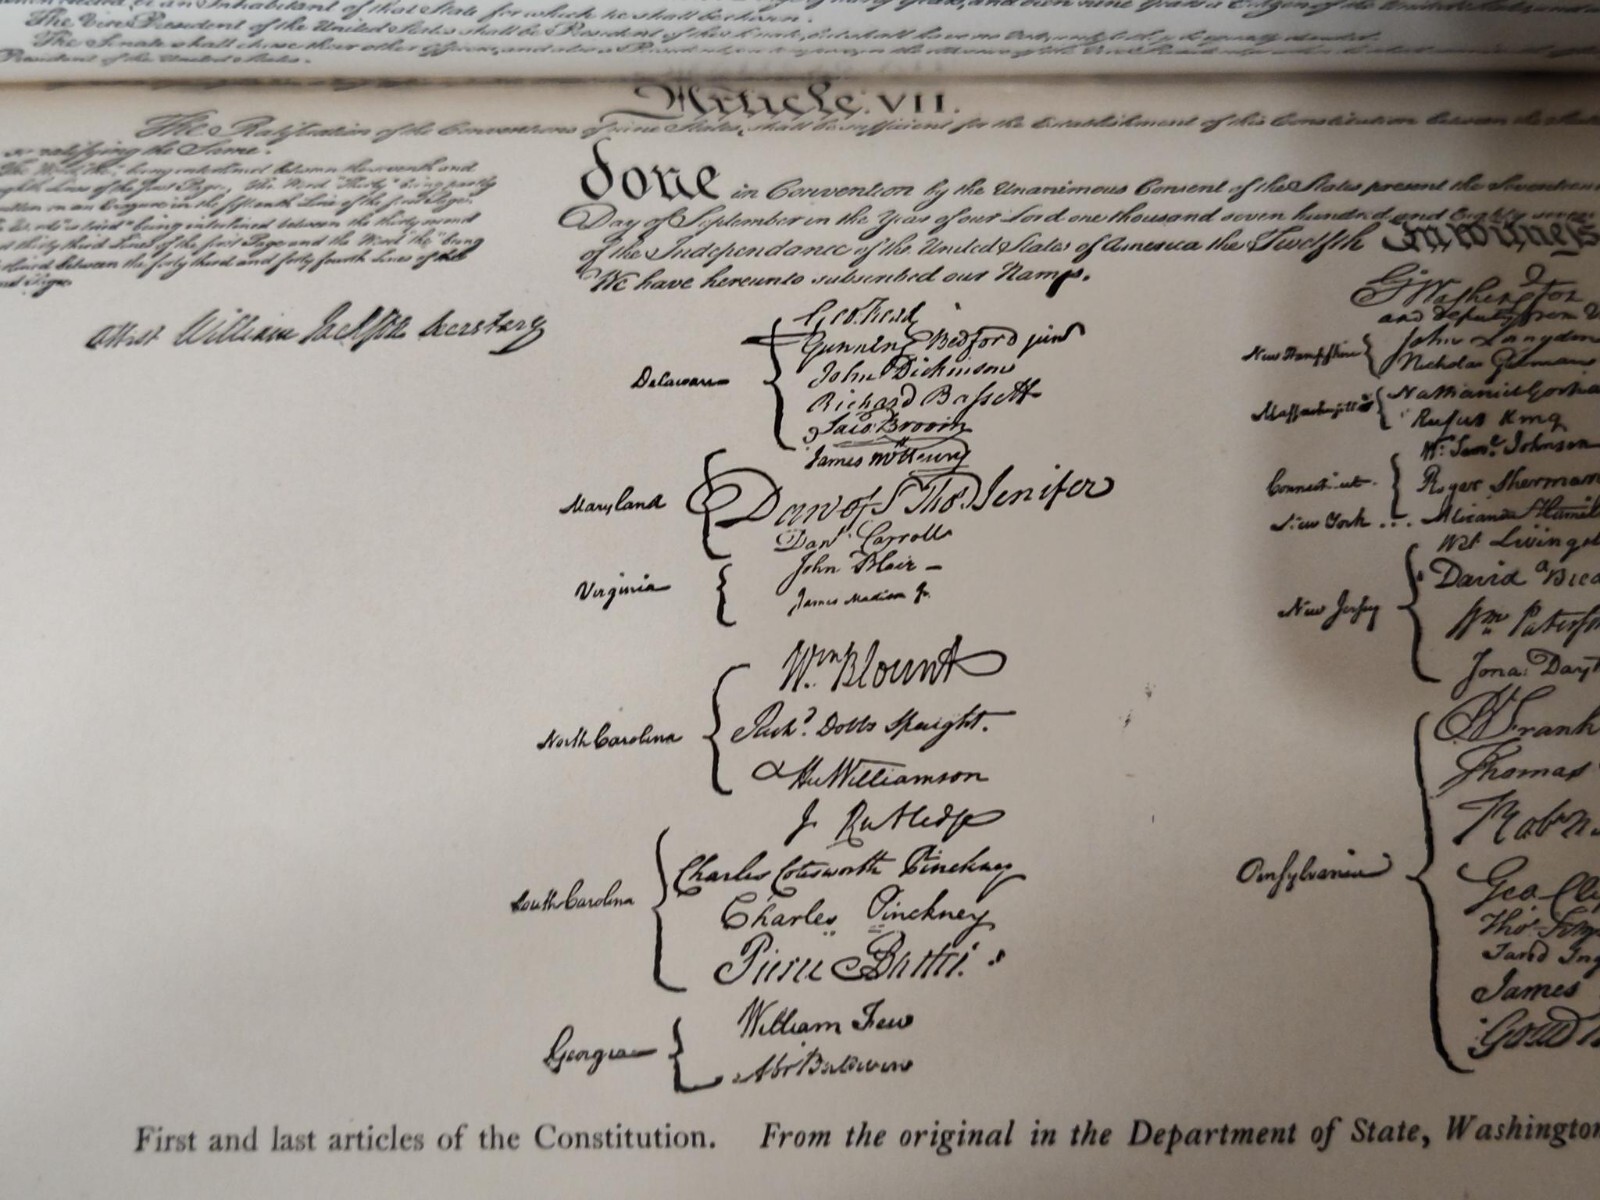 The Vice President of the United States shall be President of the Senate, but shall have no Vote, unless they be equally divided.
The Senate shall chuse their other Officers, and also a President pro tempore, in the Absence of the Vice President
President of the United States.
Article. VII.
The Ratification of the Conventions of nine States, shall be sufficient for the Establishment of this Constitution between the States
so ratifying the Same.
The Word, "the," being interlined between the seventh and
eighth Lines of the first Page, The Word "Thirty" being partly
written on an Erazure in the fifteenth Line of the first Page,
is tried" being interlined between the thirty second
and thirty third Lines of the first Page and the Word "the" being
interlined between the forty third and forty fourth Lines of the
Page.
done in Convention by the Unanimous Consent of the States present the Seventeenth
Day of September in the Year of our Lord one thousand seven hundred and Eighty seven
of the Independance of the United States of America the Twelfth In Witness
We have hereunto subscribed our Names,
Attest William Jackson Secretary
Delaware
Geo: Read
Gunning Bedford jun
John Dickinson
Richard Bassett
Jaco: Broom
Maryland
James McHenry
Dan of St Thos. Jenifer
Danl. Carroll
Virginia
John Blair —
James Madison Jr.
North Carolina
Wm. Blount
Richd. Dobbs Spaight.
Hu Williamson
South Carolina
J. Rutledge
Charles Cotesworth Pinckney
Charles Pinckney
Pierce Butler.
Georgia
William Few
Abr Baldwin
Go Washington
and deputy from
New Hampshire
John Langdon
Nicholas Gilman
Massachusetts
Nathaniel Gorha
Rufus King
Connecticut
Wm. Saml. Johnson
Roger Sherman
New York ...
Alexander Hamil
New Jersey
Wil Livings
David Brea
Wm Paters
Jona: Dayt
Pensylvania
B Frank
Thomas
Robt M
Geo. Cly
Thos. Fitz
Jared Ing
James
Gouv M
First and last articles of the Constitution. From the original in the Department of State, Washington